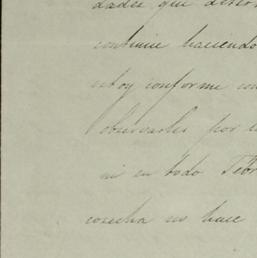 dades que
continúe haciendo
estoy conforme con
observarles por
ni en todo Febr
cosecha no hace